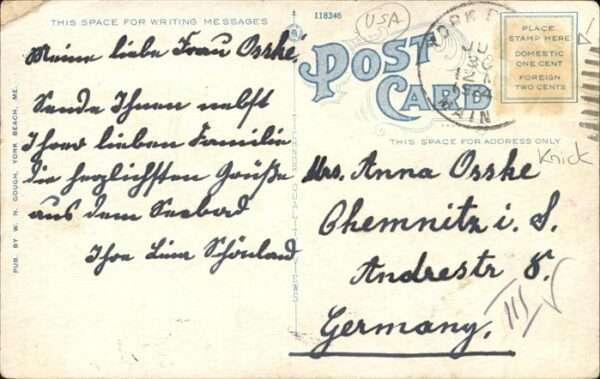 THIS SPACE FOR WRITING MESSAGES
118346
USA
POST CARD
PLACE
STAMP HERE
DOMESTIC
ONE CENT
FOREIGN
TWO CENTS
YORK
JUL
30
MAIN
THIS SPACE FOR ADDRESS ONLY
Knick
PUB. BY W. N. GOUGH, YORK BEACH, ME.
Meine liebe Frau Osske!
Sende Ihnen nebst
Ihrer lieben Familie
die herzlichsten Grüße
aus dem Seebad
Ihre Lina Schönland
Mrs. Anna Osske
Chemnitz i. S.
Andrestr 8.
Germany.
III